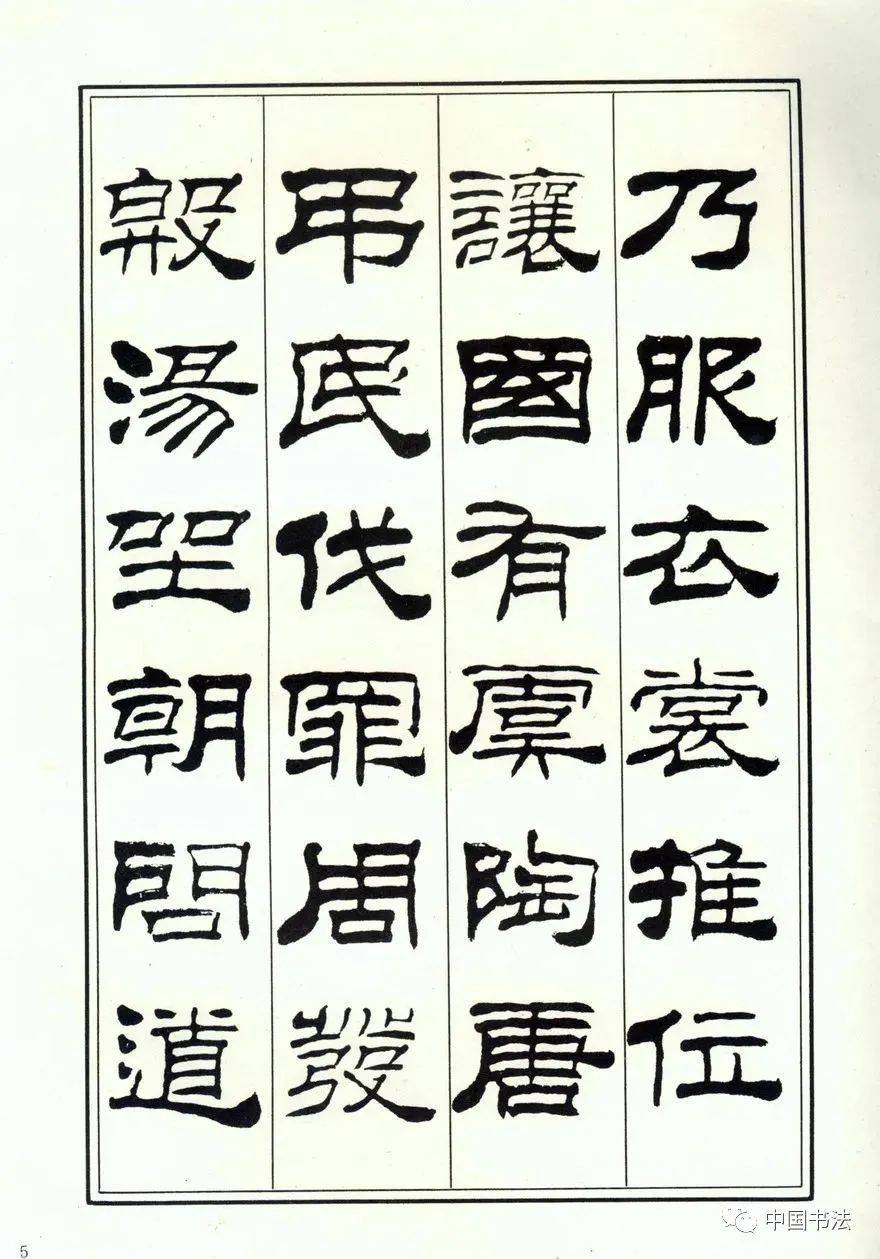 乃服衣裳推位
讓國有虞陶唐
弔民伐罪周發
殷湯坐朝問道
5
中国书法